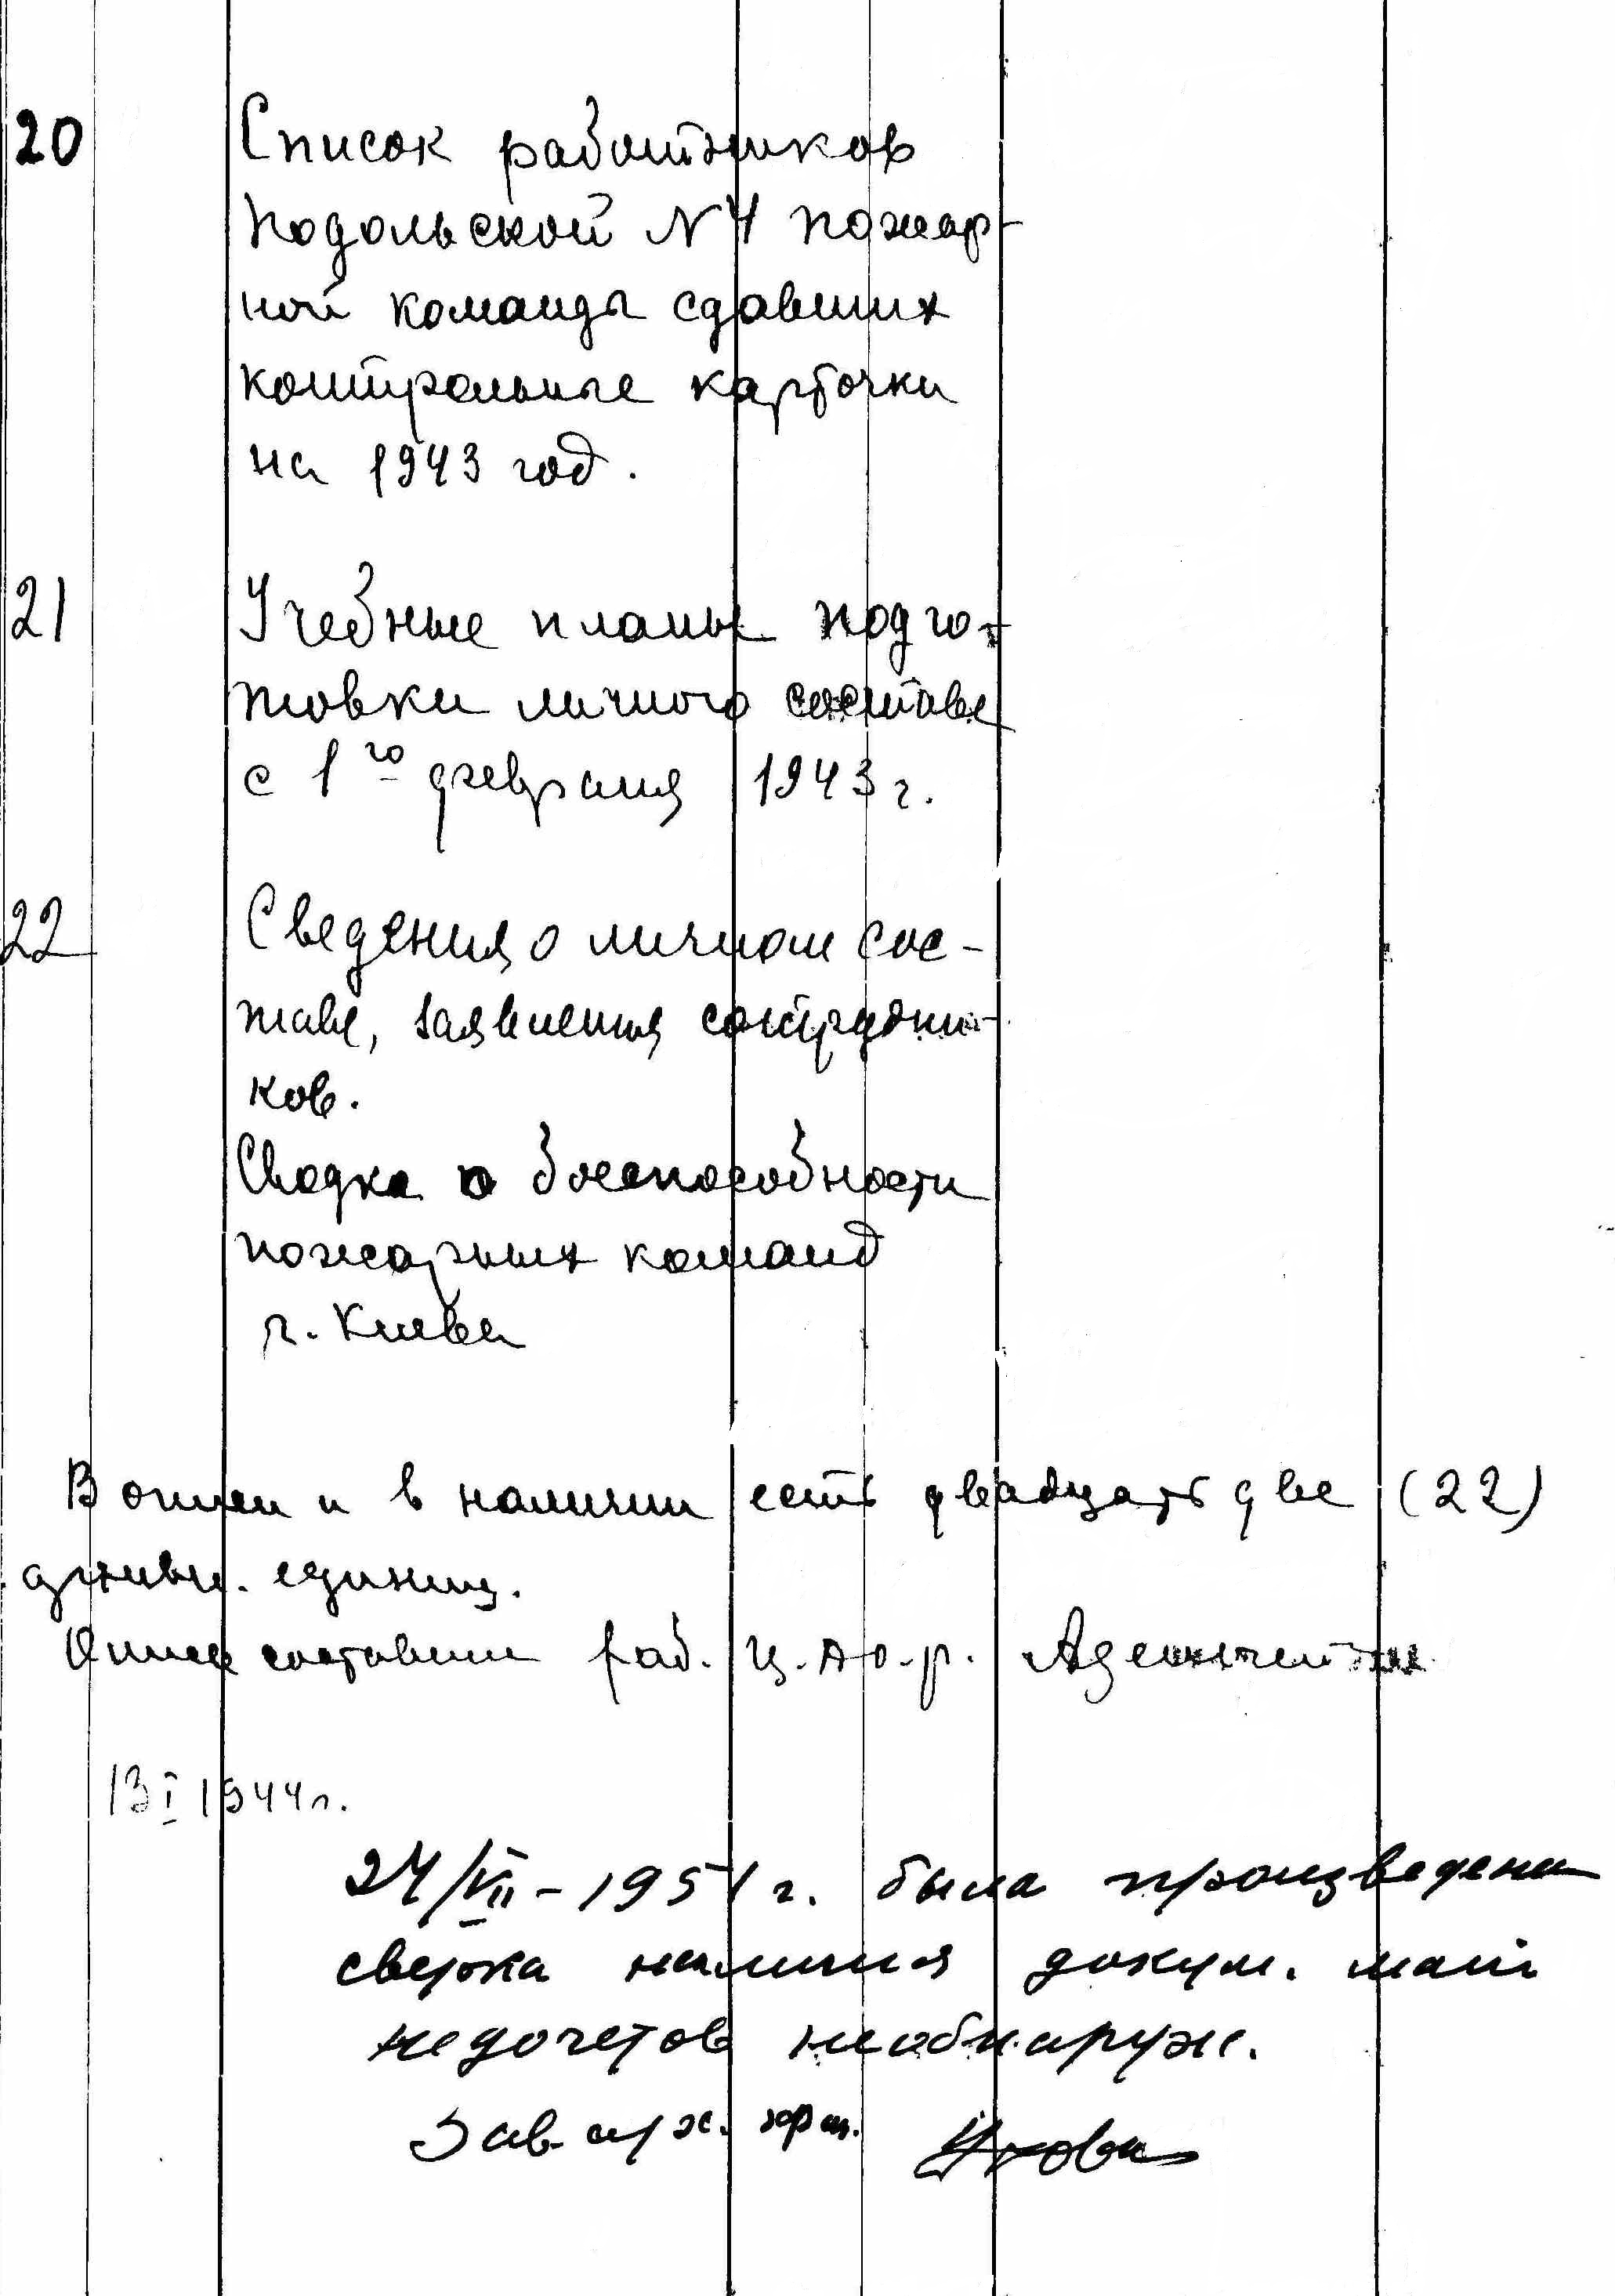 20 Список работников
Подольской N 4 пожар-
ной команды сдавших
контрольные карточки
на 1943 год.
21 Учебные планы подго-
товки личного состава
с 1го февраля 1943 г.
22 Сведения о личном сос-
таве, заявления сотрудни-
ков.
Сводка о боеспособности
пожарных команд
г. Киева
В описи и в наличии есть двадцать две (22)
архивн. единиц.
Опись составил
13 I 1944 г.
24/VII - 1951 г. была произведена
сверка наличия докум. мат
недочетов необнаруж.
Зав. арх. хран.